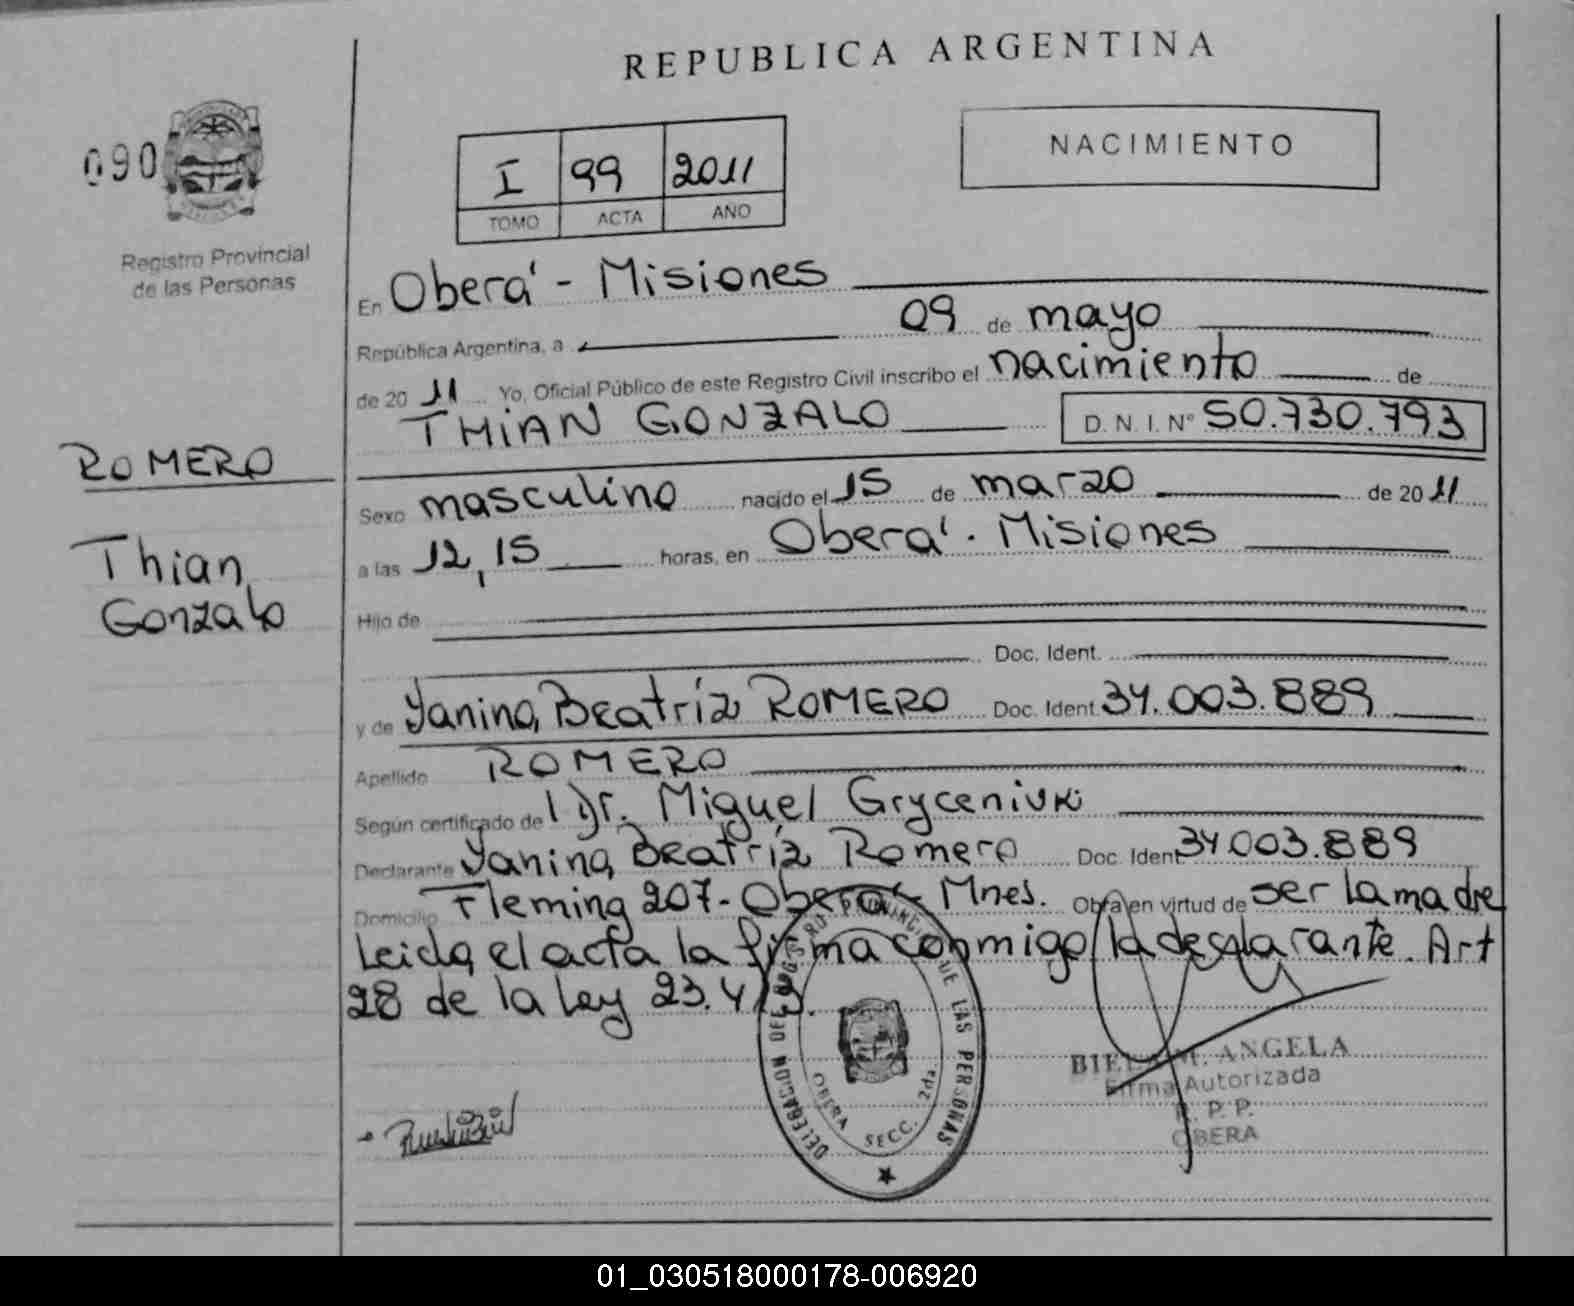 REPUBLICA ARGENTINA
090
NACIMIENTO
I 99 2011
TOMO ACTA AÑO
Registro Provincial
de las Personas
En Oberá - Misiones
República Argentina, a 09 de mayo
de 20 11 Yo, Oficial Público de este Registro Civil inscribo el nacimiento de
THIAN GONZALO D. N. I. Nº 50.730.793
ROMERO
Sexo masculino nacido el 15 de marzo de 20 11
Thian
Gonzalo
a las 12,15 horas, en Oberá - Misiones
Hijo de
Doc. Ident.
y de Yanina Beatríz ROMERO Doc. Ident. 34.003.889
Apellido ROMERO
Según certificado de l Dr. Miguel Gryceniuk
Declarante Yanina Beatríz Romero Doc. Ident 34.003.889
Domicilio Fleming 207 - Oberá - Mnes. Obra en virtud de ser la madre
Leida el acta la firma conmigo la declarante. Art
28 de la Ley 23.413.
DELEGACION DEL REGISTRO PROVINCIAL DE LAS PERSONAS
OBERA SECC. 2da.
M. ANGELA
Firma Autorizada
R. P. P.
OBERA
01_030518000178-006920